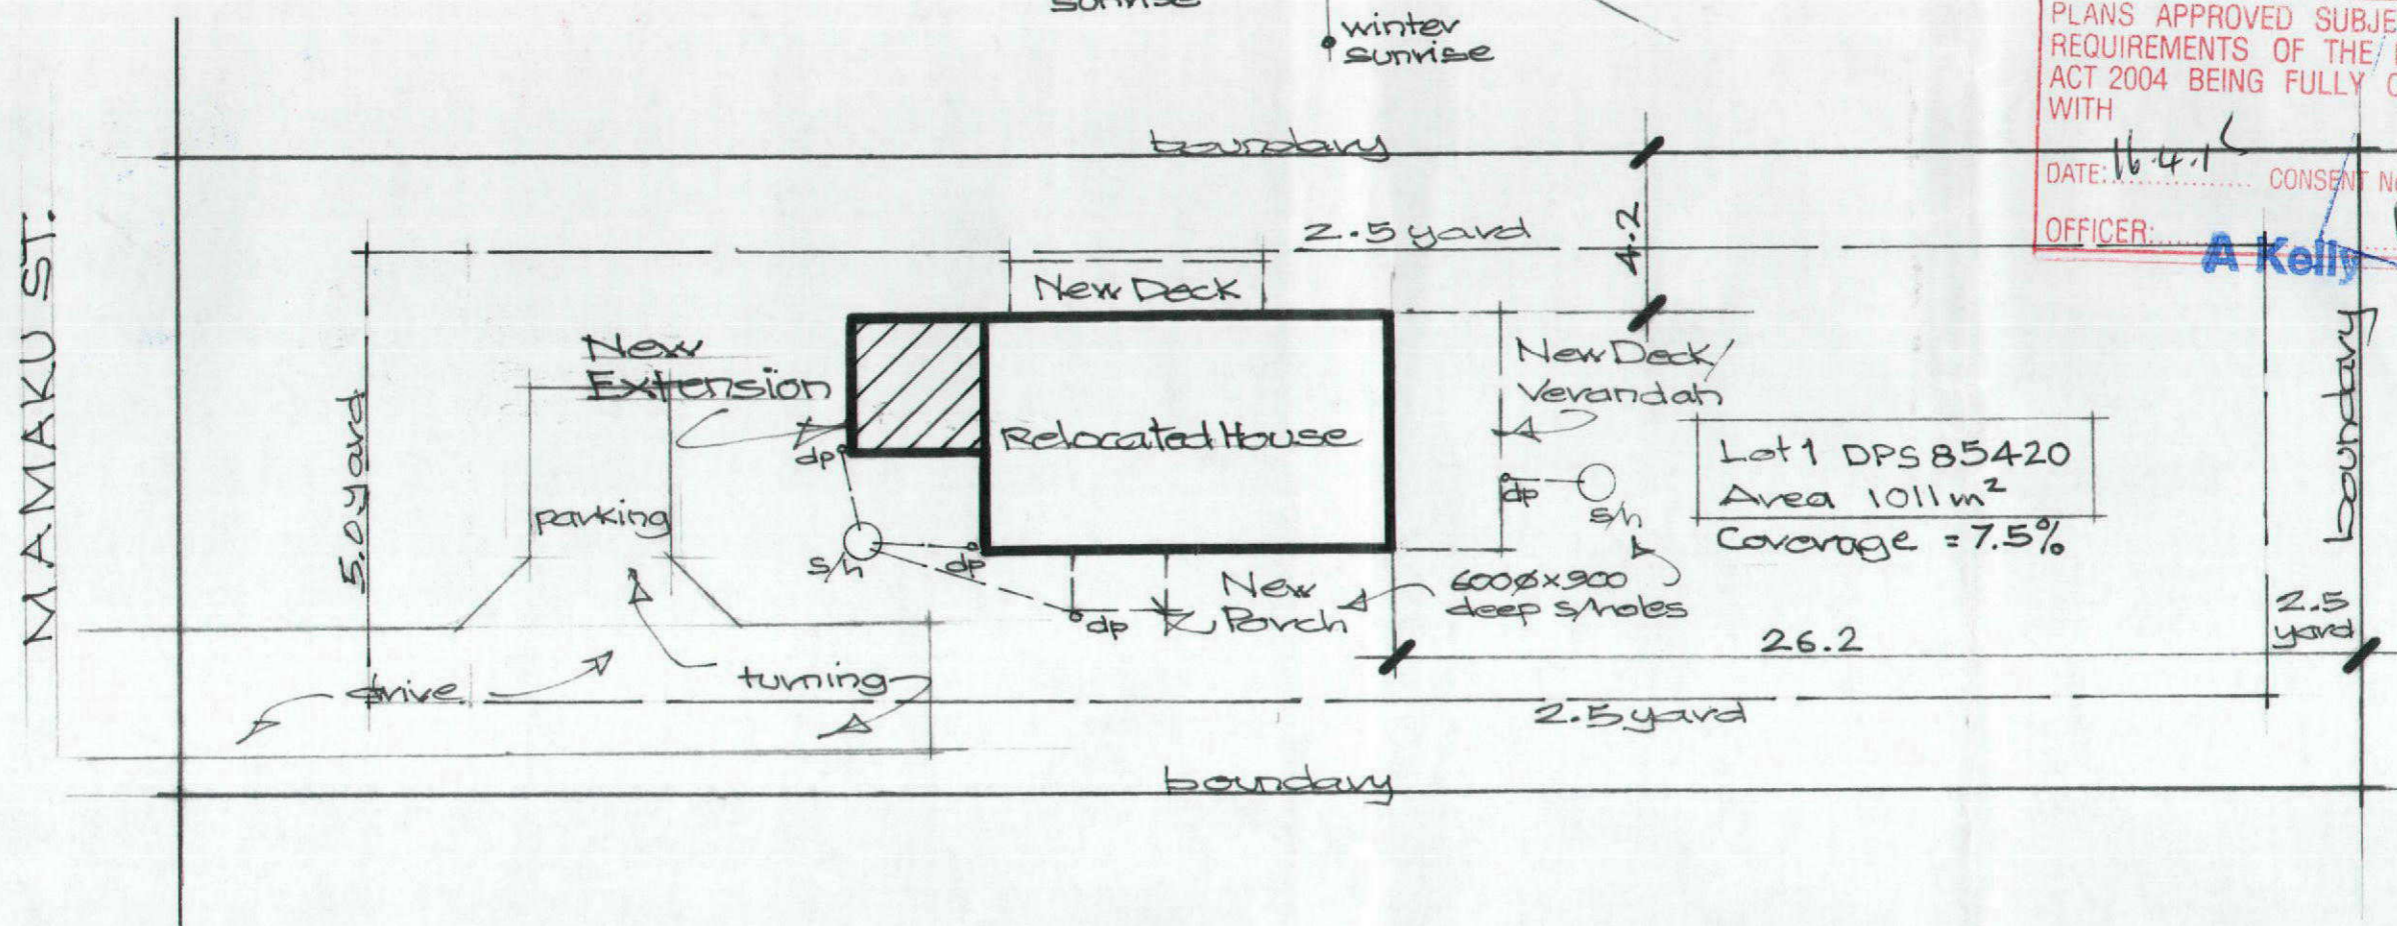 sunrise
winter
sunrise
PLANS APPROVED SUBJE
REQUIREMENTS OF THE
ACT 2004 BEING FULLY
WITH
DATE: 16.4.1
CONSENT
OFFICER:
A Kelly
MAMAKU ST.
boundary
2.5 yard
4.2
New Deck
New
Extension
5.0 yard
Relocated House
New Deck/
Verandah
boundary
dp
dp
s/h
Lot 1 DPS 85420
Area 1011 m²
Coverage = 7.5%
parking
s/h
dp
New
Porch
dp
600ø x 900
deep s/holes
2.5
yard
26.2
drive
turning
2.5 yard
boundary